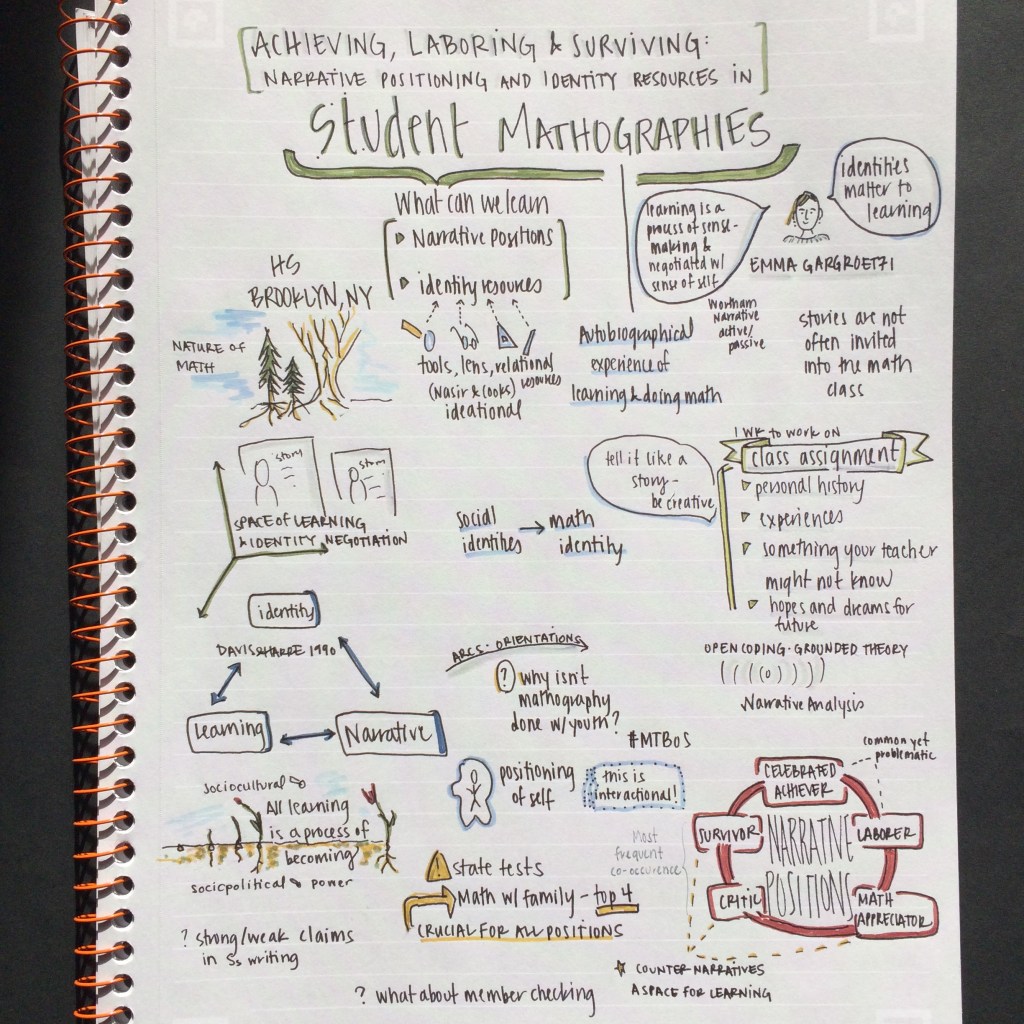 ACHIEVING, LABORING & SURVIVING:
NARRATIVE POSITIONING AND IDENTITY RESOURCES IN
Student MATHOGRAPHIES
What can we learn
Narrative Positions
identity resources
tools, lens, relational
resources
(Nasir & Cooks)
ideational
HS
BROOKLYN, NY
NATURE OF
MATH
learning is a
process of sense-
making &
negotiated w/
sense of self
identities
matter to
learning
EMMA GARGROETZI
Autobiographical
experience of
learning & doing math
Wortham
Narrative
active/
passive
stories are not
often invited
into the math
class
story
story
SPACE OF LEARNING
& IDENTITY NEGOTIATION
social
identities
→ math
identity
tell it like a
story -
be creative
1 WK TO WORK ON
class assignment
personal history
experiences
something your teacher
might not know
hopes and dreams for
future
OPEN CODING · GROUNDED THEORY
Narrative Analysis
identity
1990
Learning
Narrative
ARCS · ORIENTATIONS
? why isn't
mathography
done w/ youth?
#MTBoS
positioning
of self
this is
interactional!
sociocultural
All learning
is a process of
becoming
sociopolitical
power
? strong/weak claims
in Ss writing
! state tests
Math w/ family - top 4
CRUCIAL FOR ALL POSITIONS
? what about member checking
Most
frequent
co-occurence
common yet
problematic
CELEBRATED
ACHIEVER
SURVIVOR
LABORER
NARRATIVE
POSITIONS
CRITIC
MATH
APPRECIATOR
COUNTER NARRATIVES
A SPACE FOR LEARNING